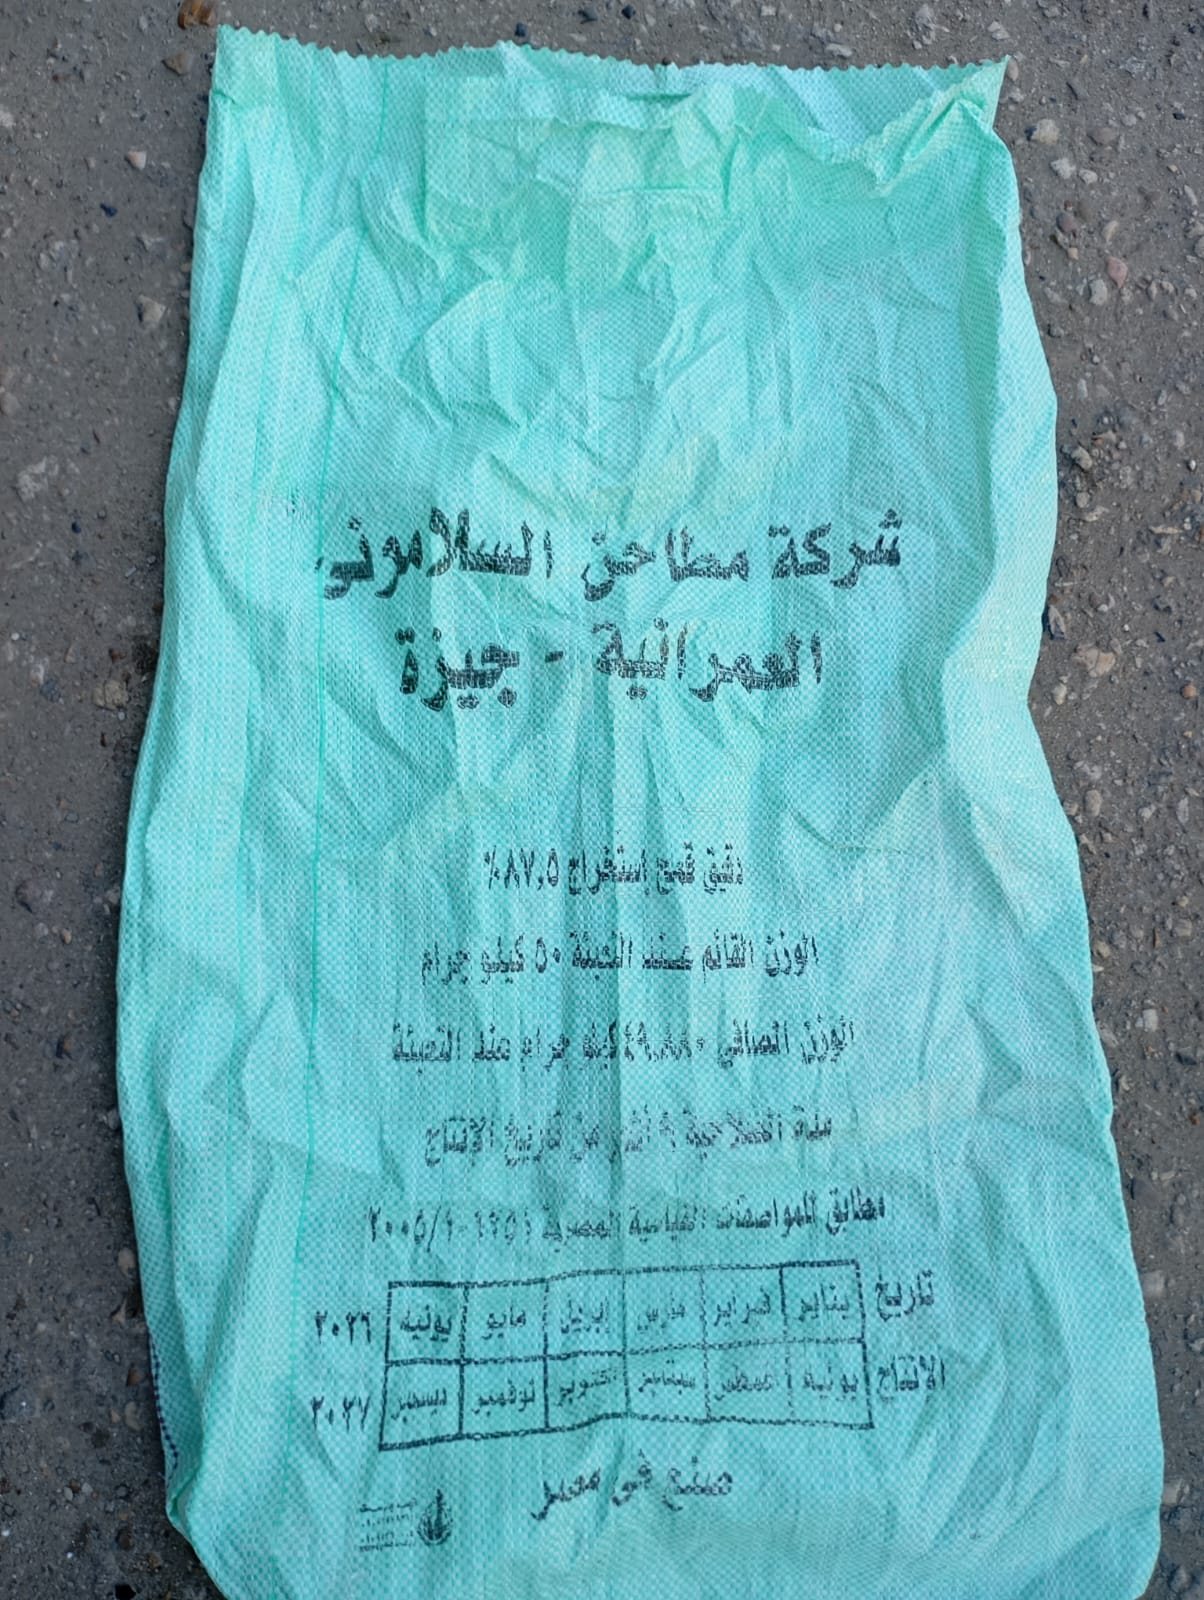 شركة مطاحن السلامونى
العمرانية - جيزة
دقيق قمح إستخراج ٨٧,٥%
الوزن القائم عند التعبئة ٥٠ كيلو جرام
الوزن الصافى ٤٩,٨٨٠ كيلو جرام عند التعبئة
مدة الصلاحية أشهر من تاريخ الإنتاج
مطابق للمواصفات القياسية المصرية ١٢٥١-٢٠٠٥/١
تاريخ يناير فبراير مارس إبريل مايو يونيه ٢٠٢٦
الانتاج يوليه اغسطس سبتمبر اكتوبر نوفمبر ديسمبر ٢٠٢٧
صنع فى مصر